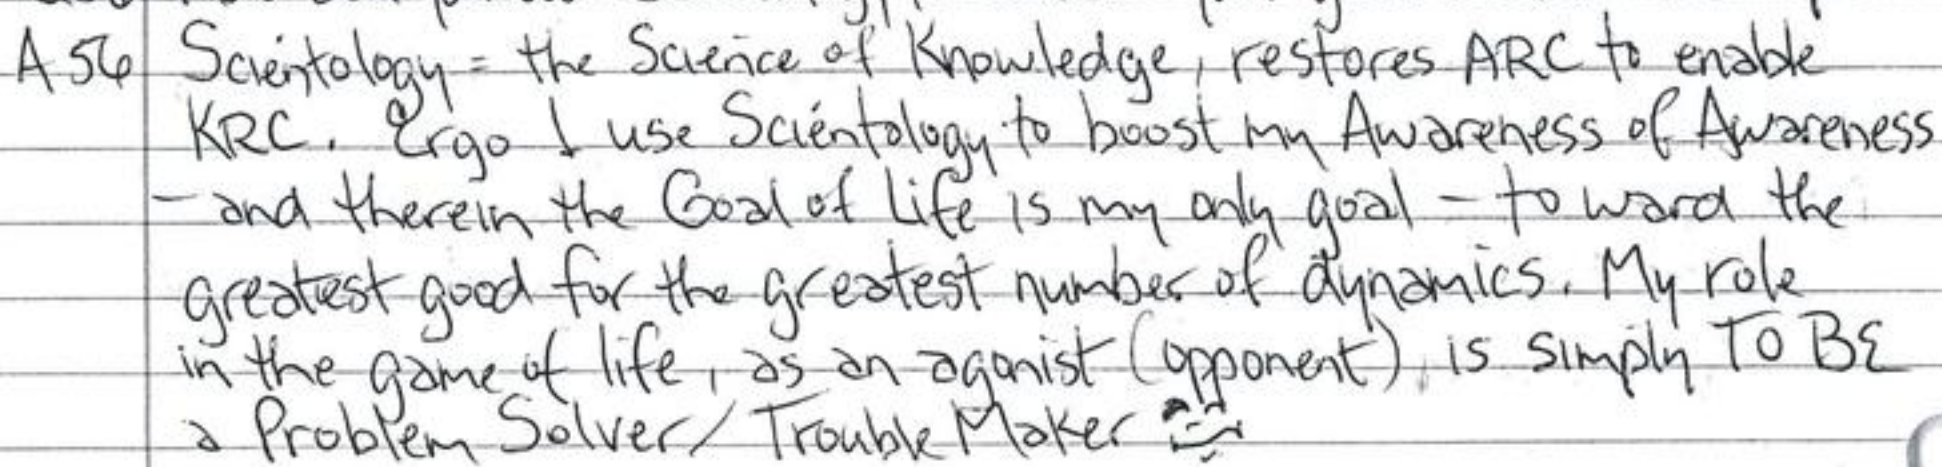 A56 Scientology = the Science of Knowledge, restores ARC to enable
KRC. Ergo I use Scientology to boost my Awareness of Awareness
- and therein the Goal of Life is my only goal - toward the
greatest good for the greatest number of dynamics. My role
in the game of life, as an agonist (opponent), is simply TO BE
a Problem Solver/Trouble Maker